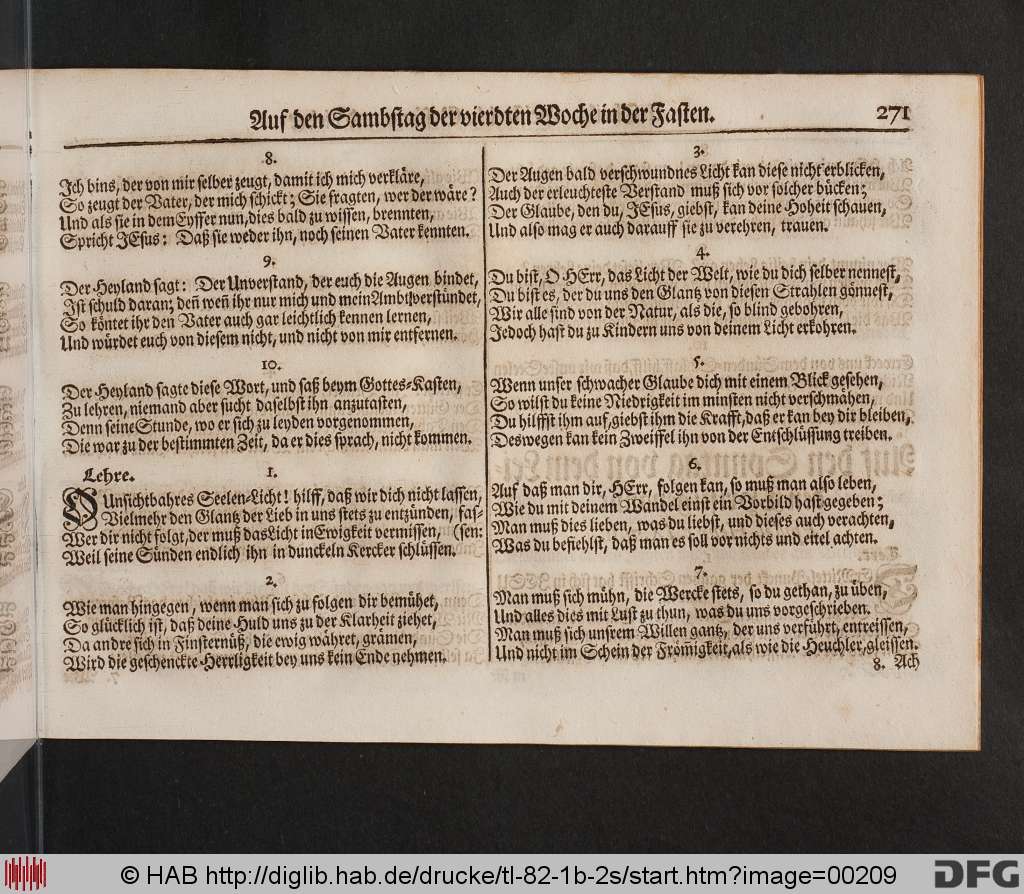 Auf den Sambstag der vierdten Woche in der Fasten. 271
8.
Ich bins, der von mir selber zeugt, damit ich mich verkläre,
So zeugt der Vater, der mich schickt; Sie fragten, wer der wäre?
Und als sie in dem Eyffer nun, dies bald zu wissen, brennten,
Spricht JEsus: Daß sie weder ihn, noch seinen Vater kennten.
9.
Der Heyland sagt: Der Unverstand, der euch die Augen bindet,
Ist schuld daran; deñ weñ ihr nur mich und mein Ambt verstündet,
So köntet ihr den Vater auch gar leichtlich kennen lernen,
Und würdet euch von diesem nicht, und nicht von mir entfernen.
10.
Der Heyland sagte diese Wort, und saß beym Gottes-Kasten,
Zu lehren, niemand aber sucht daselbst ihn anzutasten,
Denn seine Stunde, wo er sich zu leyden vorgenommen,
Die war zu der bestimmten Zeit, da er dies sprach, nicht kommen.
Lehre. 1.
O Unsichtbahres Seelen-Licht! hilff, daß wir dich nicht lassen,
Vielmehr den Glantz der Lieb in uns stets zu entzünden, fas-
Wer dir nicht folgt, der muß das Licht in Ewigkeit vermissen, (sen:
Weil seine Sünden endlich ihn in dunckeln Kercker schlüssen.
2.
Wie man hingegen, wenn man sich zu folgen dir bemühet,
So glücklich ist, daß deine Huld uns zu der Klarheit ziehet,
Da andre sich in Finsternüß, die ewig währet, grämen,
Wird die geschenckte Herrligkeit bey uns kein Ende nehmen.
3.
Der Augen bald verschwundnes Licht kan diese nicht erblicken,
Auch der erleuchteste Verstand muß sich vor solcher bücken;
Der Glaube, den du, JEsus, giebst, kan deine Hoheit schauen,
Und also mag er auch darauff sie zu verehren, trauen.
4.
Du bist, O HErr, das Licht der Welt, wie du dich selber nennest,
Du bist es, der du uns den Glantz von diesen Strahlen gönnest,
Wir alle sind von der Natur, als die, so blind gebohren,
Jedoch hast du zu Kindern uns von deinem Licht erkohren.
5.
Wenn unser schwacher Glaube dich mit einem Blick gesehen,
So wilst du keine Niedrigkeit im minsten nicht verschmähen,
Du hilffst ihm auf, giebst ihm die Krafft, daß er kan bey dir bleiben,
Deswegen kan kein Zweiffel ihn von der Entschlüssung treiben.
6.
Auf daß man dir, HErr, folgen kan, so muß man also leben,
Wie du mit deinem Wandel einst ein Vorbild hast gegeben;
Man muß dies lieben, was du liebst, und dieses auch verachten,
Was du befiehlst, daß man es soll vor nichts und eitel achten.
7.
Man muß sich mühn, die Wercke stets, so du gethan, zu üben,
Und alles dies mit Lust zu thun, was du uns vorgeschrieben.
Man muß sich unsrem Willen gantz, der uns verführt, entreissen,
Und nicht im Schein der From̃igkeit, als wie die Heuchler, gleissen.
8. Ach
© HAB http://diglib.hab.de/drucke/tl-82-1b-2s/start.htm?image=00209
DFG